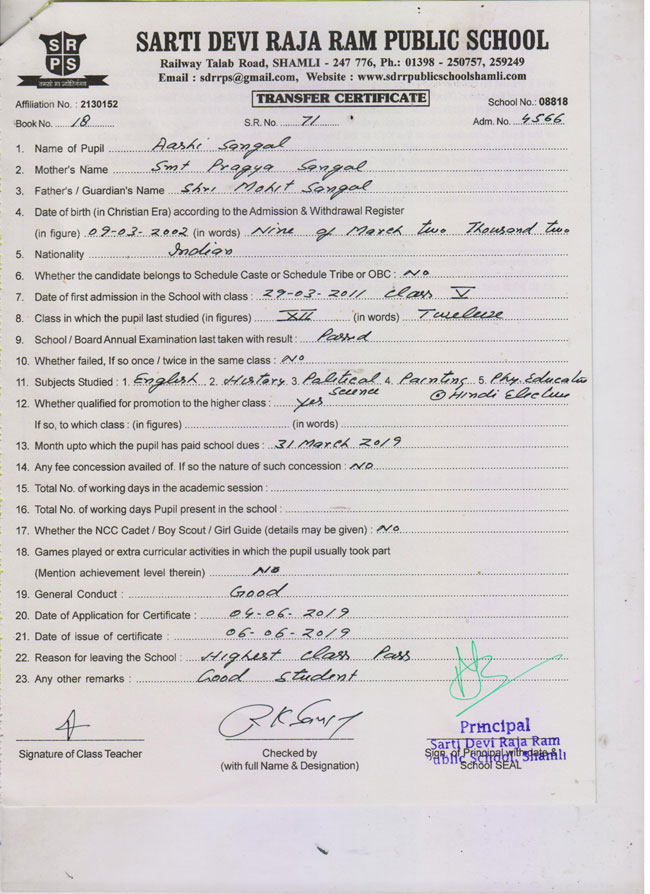 SRPS
तमसो मा ज्योतिर्गमय
SARTI DEVI RAJA RAM PUBLIC SCHOOL
Railway Talab Road, SHAMLI - 247 776, Ph.: 01398 - 250757, 259249
Email : sdrrps@gmail.com, Website : www.sdrrpublicschoolshamli.com
TRANSFER CERTIFICATE
Affiliation No. : 2130152 School No.: 08818
Book No. 18 S.R. No. 71 Adm. No. 4566
1. Name of Pupil Aashi Sangal
2. Mother's Name Smt Pragya Sangal
3. Father's / Guardian's Name Shri Mohit Sangal
4. Date of birth (in Christian Era) according to the Admission & Withdrawal Register
(in figure) 09-03-2002 (in words) Nine of March two Thousand two
5. Nationality Indian
6. Whether the candidate belongs to Schedule Caste or Schedule Tribe or OBC : No
7. Date of first admission in the School with class : 29-03-2011 Class V
8. Class in which the pupil last studied (in figures) XII (in words) Twelve
9. School / Board Annual Examination last taken with result : Passed
10. Whether failed, If so once / twice in the same class : No
11. Subjects Studied : 1. English 2. History 3. Political Science 4. Painting 5. Phy. Education
6 Hindi Elective
12. Whether qualified for promotion to the higher class : yes
If so, to which class : (in figures) (in words)
13. Month upto which the pupil has paid school dues : 31 March 2019
14. Any fee concession availed of. If so the nature of such concession : NO
15. Total No. of working days in the academic session :
16. Total No. of working days Pupil present in the school :
17. Whether the NCC Cadet / Boy Scout / Girl Guide (details may be given) : No
18. Games played or extra curricular activities in which the pupil usually took part
(Mention achievement level therein) No
19. General Conduct : Good
20. Date of Application for Certificate : 04-06-2019
21. Date of issue of certificate : 06-06-2019
22. Reason for leaving the School : Highest Class Pass
23. Any other remarks : Good Student
Principal
Sarti Devi Raja Ram
ublic School, Shamli
Signature of Class Teacher
Checked by
(with full Name & Designation)
Sign. of Principal with date &
School SEAL